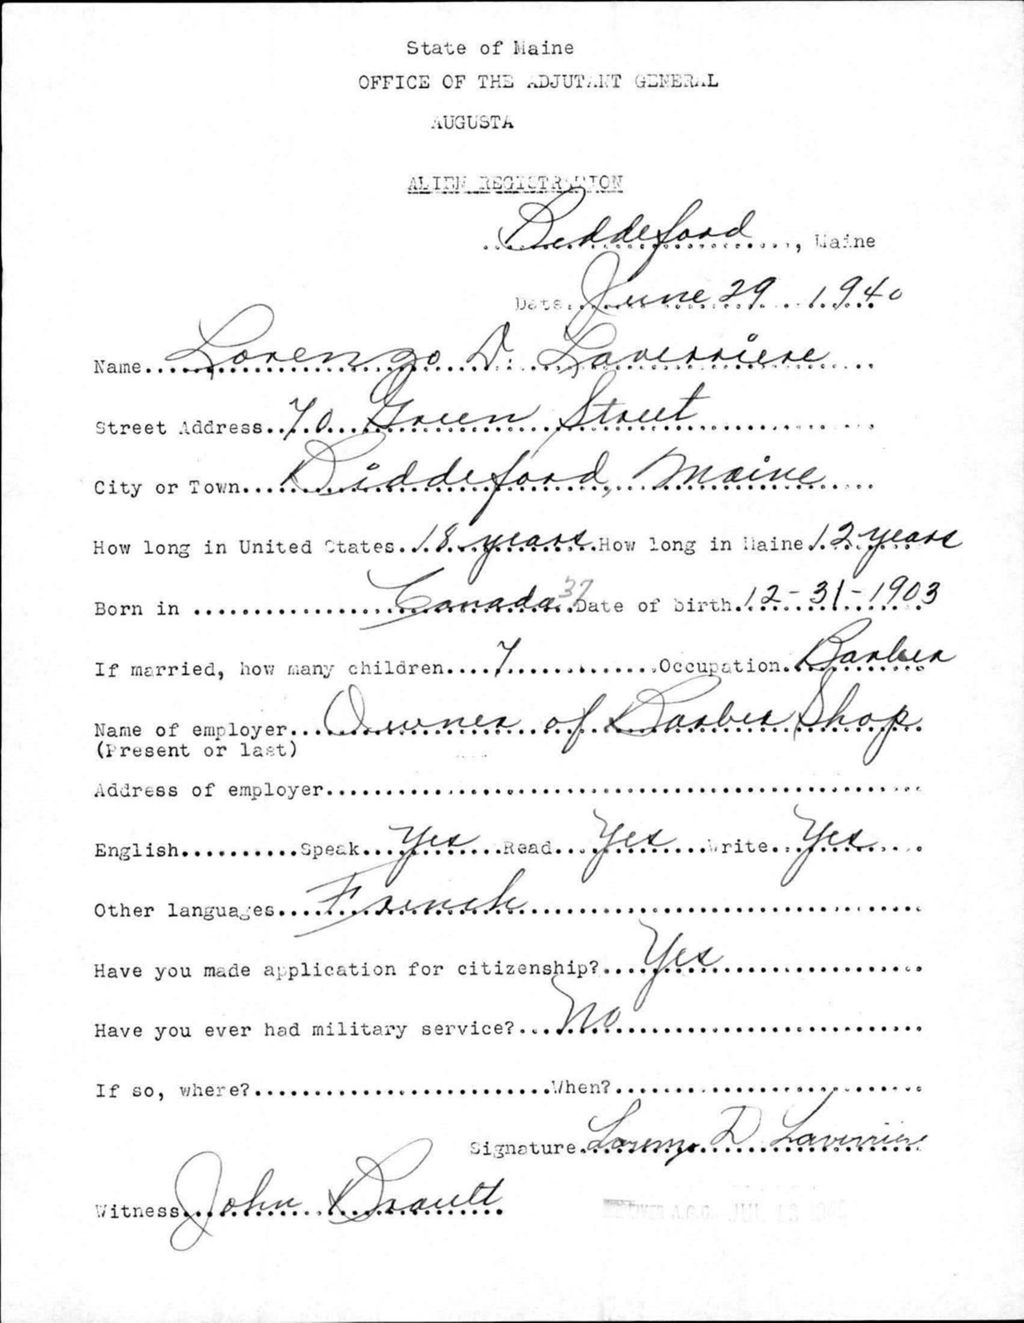 State of Maine
OFFICE OF THE ADJUTANT GENERAL
AUGUSTA
ALIEN REGISTRATION
Biddeford, Maine
Date June 29 1940
Name Lorenzo D. Laverriere
Street Address 70 Green Street
City or Town Biddeford, Maine
How long in United States 18 years How long in Maine 12 years
Born in Canada 37 Date of birth 12-31-1903
If married, how many children 7 Occupation Barber
Name of employer Owner of Barber Shop
(Present or last)
Address of employer
English Speak Yes Read Yes Write Yes
Other languages French
Have you made application for citizenship? Yes
Have you ever had military service? No
If so, where? When?
Signature Lorenzo D Laverriere
Witness John Brault
A.G.O. JUL